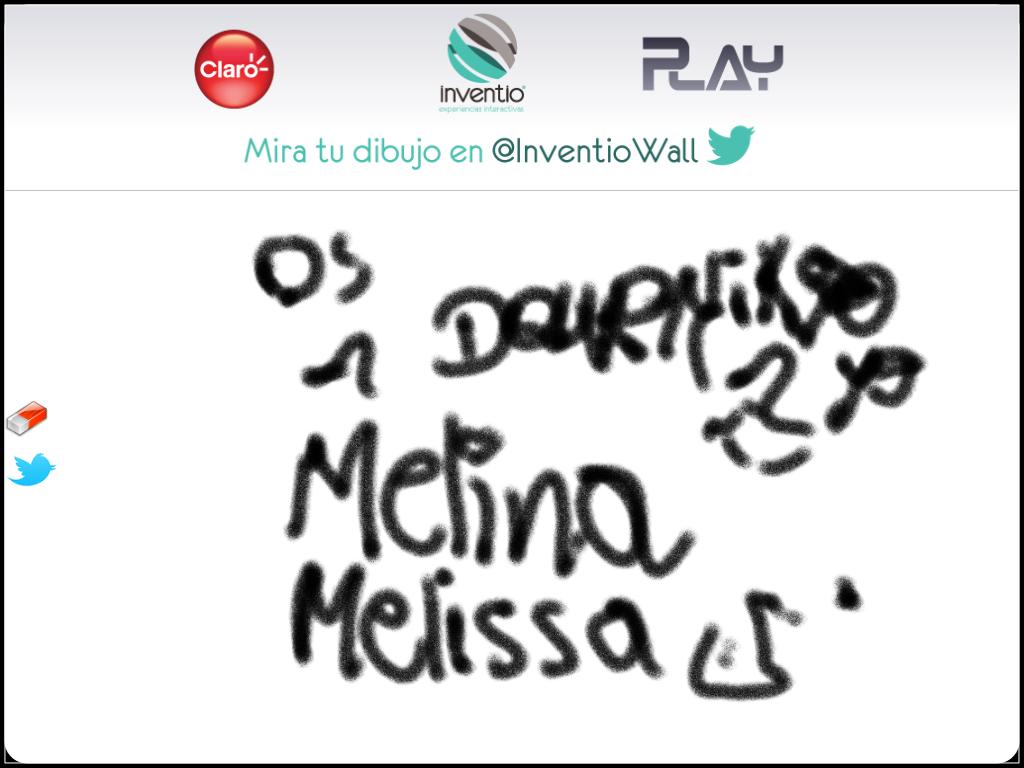 Claro
inventio
experiencias interactivas
PLAY
Mira tu dibujo en @InventioWall
Os
1
2
Melina
Melissa